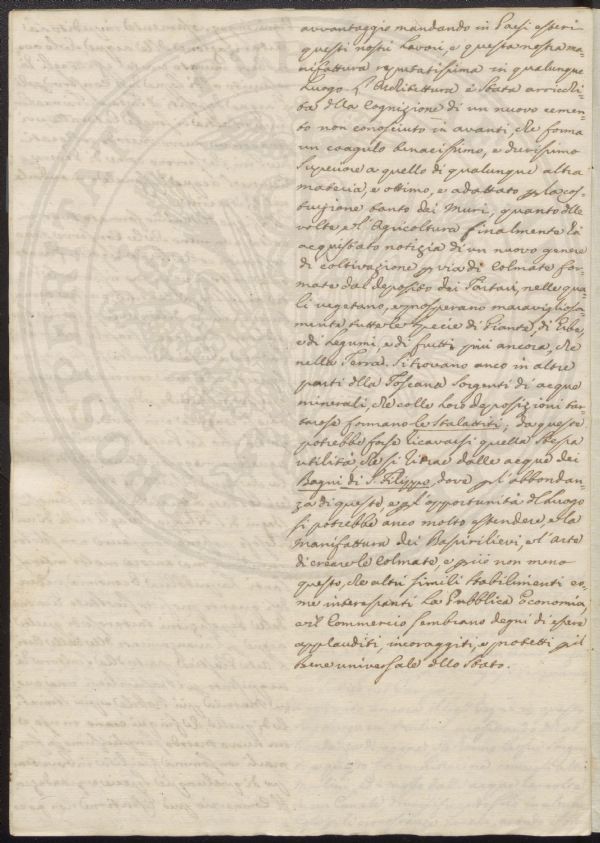 avvantaggio mandando in Paesi esteri
questi nostri Lavori, e questa nostra ma-
nifattura reputatissima in qualunque
Luogo. L'Architettura è Stata arricchi-
ta dlla Cognizione di un nuovo cemen-
to non conosciuto in avanti, che forma
un coagulo tenacissimo, e durissimo
Superiore a quello di qualunque altra
materia, e ottimo, e adattato p la cos-
truzione tanto dei Muri, quanto dlle
volte, e l'Agricoltura finalmente hà
acquistato notizia di un nuovo genere
di coltivazione p via di Colmate for-
mate dal deposito dei Tartari, nelle qua-
li vegetano, e prosperano maravigliosa-
mente tutte le Specie di Piante, di Erbe,
e di Legumi, e di frutti più ancora, che
nella Terra. Si trovano anco in altre
parti dlla Toscana Sorgenti di acque
minerali, che colle Loro deposizioni tar-
tarose formano le Stalattiti, da queste
potrebbe forse ricavarsi quella Stessa
utilità, che si ritrae dalle acque dei
Bagni di S. Filippo, dove p l'abbondan-
za di queste, e p l'opportunità dl Luogo
si potrebbe anco molto estendere, e la
Manifattura dei Bassirilievi, e l'arte
di creare le Colmate, e più non meno
questo, che altri simili stabilimenti co-
me interessanti La Pubblica Economia,
e il Commercio Sembrano degni di essere
applauditi, incoraggiti, e protetti p il
bene universale dllo Stato.